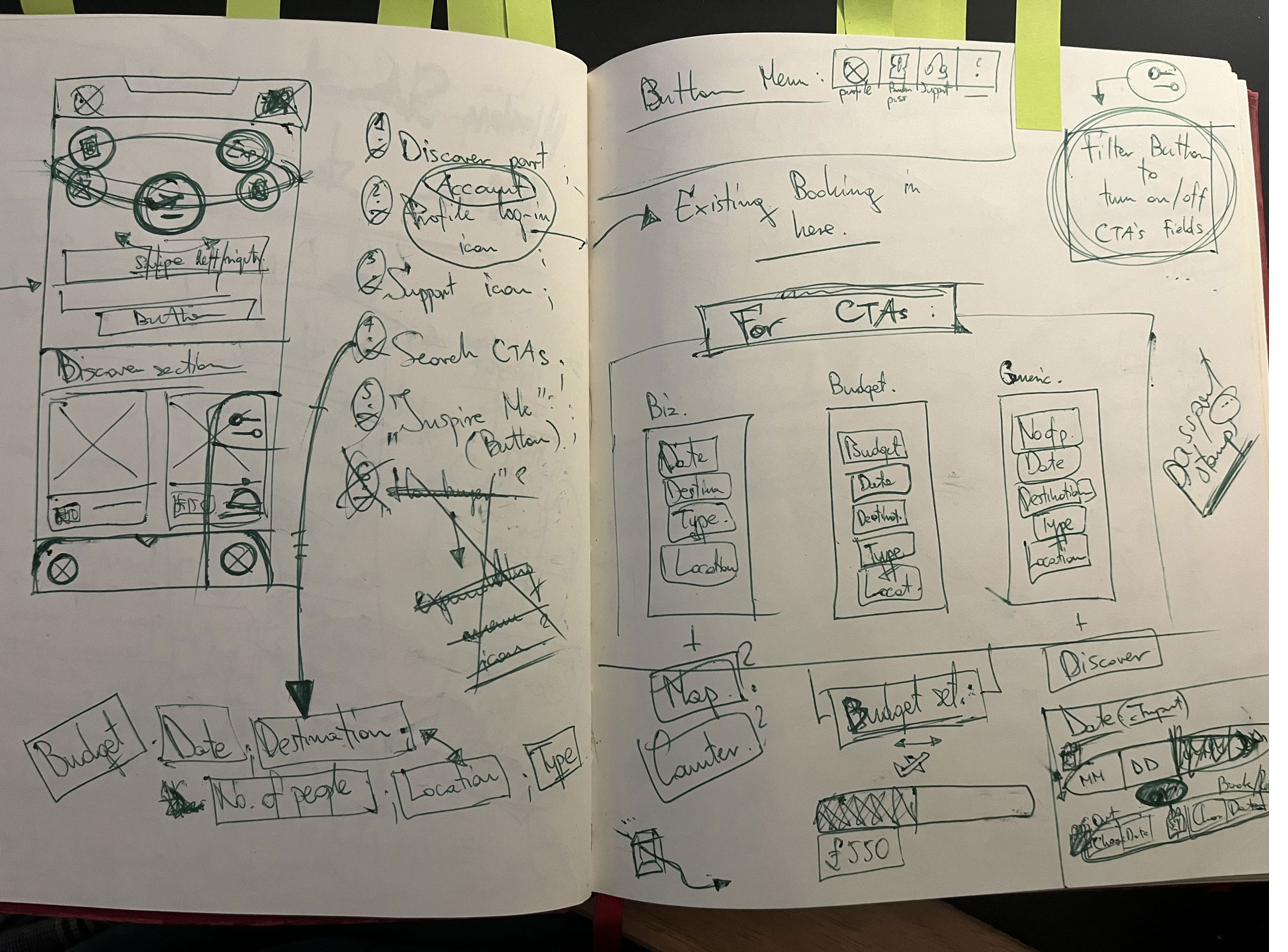 Exp
Swipe left/right
Button
Discover section
1.
Discover part
2.
Account
Profile log-in
icon
3.
Support icon;
4.
Search CTAs.
5.
"Inspire Me"
(Button).
menu
icon
Budget
Date
Destination
No. of people
Location
Type
Button Menu:
profile
Support
Existing Booking in
here.
Filter Button
to
turn on/off
CTA's Fields
...
For CTAs:
Biz.
Date
Destin
Type
Location
Budget.
Budget
Date
Destinat.
Type
Locat.
Generic.
No of p.
Date
Destination
Type
Location
passport
stamp
+
Map.?
Counter?
Budget set:
£550
+
Discover
Date
MM
DD
Date